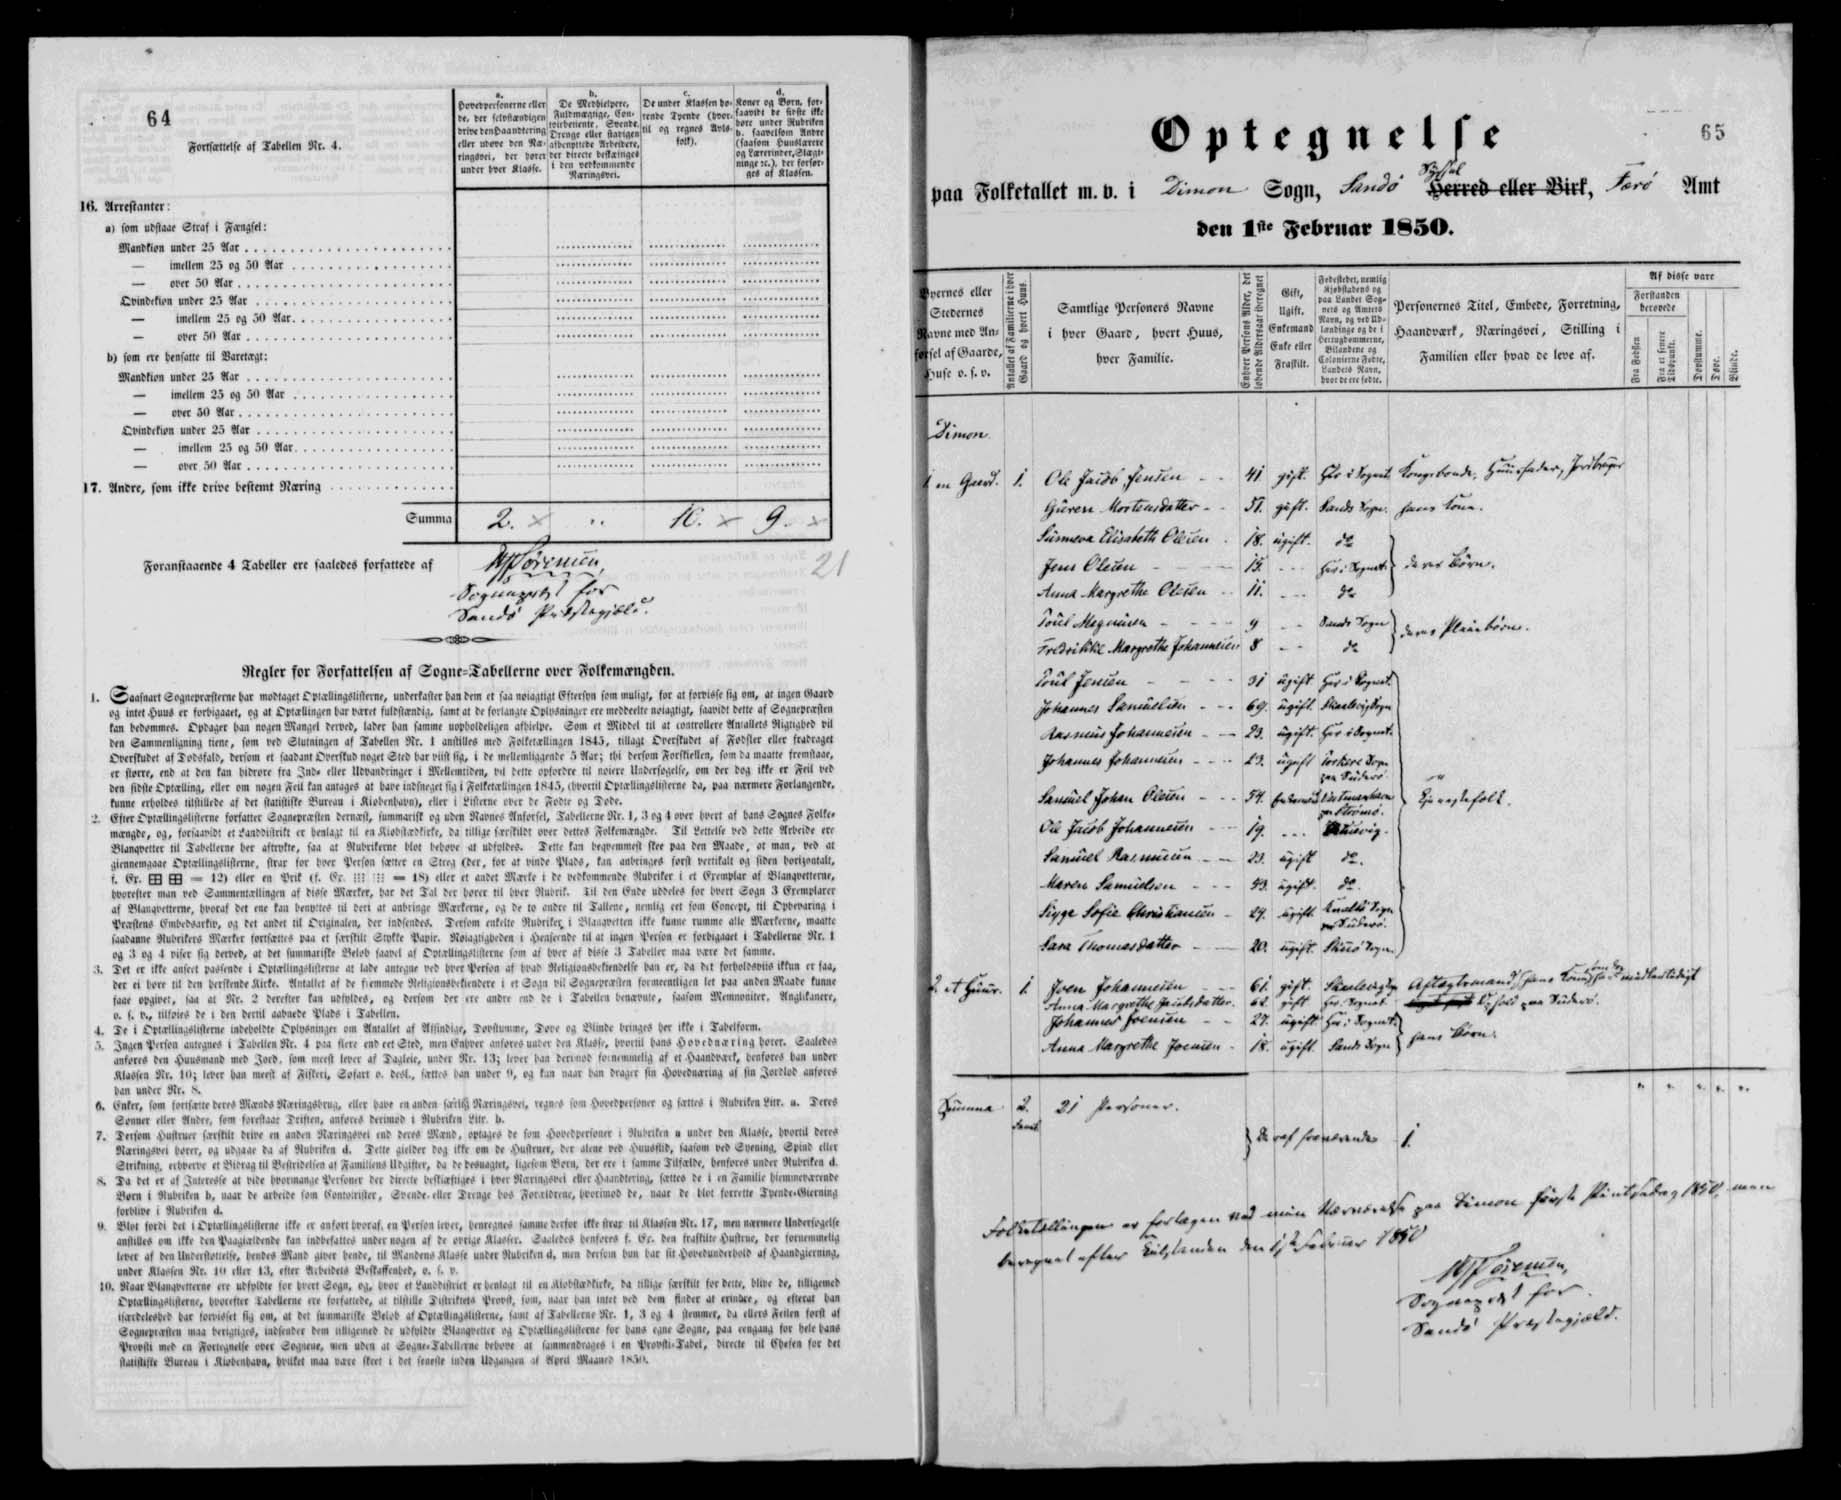 64
Fortsættelse af Tabellen Nr. 4.
a.
Hovedpersonerne eller
de, der selvstændigen
drive den Haandtering
eller udøve den Næ-
ringsvei, der hører
under hver Klasse.
b.
De Medhielpere,
Fuldmægtige, Con-
toirbetiente, Svende,
Drenge eller stadigen
afbenyttede Arbeidere,
der directe beskæftiges
i den vedkommende
Næringsvei.
c.
De under Klassen hø-
rende Tyende (hvor-
til og regnes Avls-
folk).
d.
Koner og Børn, for-
saavidt de sidste ikke
høre under Rubriken
b. saavelsom Andre
(saasom Huuslærere
og Lærerinder, Slægt-
ninge ɾc.), der forsør-
ges af Klassen.
16. Arrestanter:
a) som udstaae Straf i Fængsel:
Mandkiøn under 25 Aar
— imellem 25 og 50 Aar
— over 50 Aar
Qvindekiøn under 25 Aar
— imellem 25 og 50 Aar
— over 50 Aar
b) som ere hensatte til Varetægt:
Mandkiøn under 25 Aar
— imellem 25 og 50 Aar
— over 50 Aar
Qvindekiøn under 25 Aar
— imellem 25 og 50 Aar
— over 50 Aar
17. Andre, som ikke drive bestemt Næring
Summa 2. " 10. 9.
21
Foranstaaende 4 Tabeller ere saaledes forfattede af
Sørensen,
Sognepræst for
Sandø Præstegjæld.
Regler for Forfattelsen af Sogne-Tabellerne over Folkemængden.
1. Saasnart Sognepræsterne har modtaget Optællingslisterne, underkaster han dem et saa nøiagtigt Eftersyn som muligt, for at forvisse sig om, at ingen Gaard
og intet Huus er forbigaaet, og at Optællingen har været fuldstændig, samt at de forlangte Oplysninger ere meddeelte nøiagtigt, saavidt dette af Sognepræsten
kan bedømmes. Opdager han nogen Mangel derved, lader han samme uopholdeligen afhielpe. Som et Middel til at controllere Antallets Rigtighed vil
den Sammenligning tiene, som ved Slutningen af Tabellen Nr. 1 anstilles med Folketællingen 1845, tillagt Overskudet af Fødsler eller fradraget
Overskudet af Dødsfald, dersom et saadant Overskud noget Sted har viist sig, i de mellemliggende 5 Aar; thi dersom Forskiellen, som da maatte fremstaae,
er større, end at den kan hidrøre fra Ind- eller Udvandringer i Mellemtiden, vil dette opfordre til nøiere Undersøgelse, om der dog ikke er Feil ved
den sidste Optælling, eller om nogen Feil kan antages at have indsneget sig i Folketællingen 1845, (hvortil Optællingslisterne da, paa nærmere Forlangende,
kunne erholdes tilstillede af det statistiske Bureau i Kiøbenhavn), eller i Listerne over de Fødte og Døde.
2. Efter Optællingslisterne forfatter Sognepræsten dernæst, summarisk og uden Navnes Anførsel, Tabellerne Nr. 1, 3 og 4 over hvert af hans Sognes Folke-
mængde, og, forsaavidt et Landdistrikt er henlagt til en Kiøbstædkirke, da tillige særskildt over dettes Folkemængde. Til Lettelse ved dette Arbeide ere
Blanqvetter til Tabellerne her aftrykte, saa at Rubrikerne blot behøve at udfyldes. Dette kan beqvemmest skee paa den Maade, at man, ved at
giennemgaae Optællingslisterne, strax for hver Person sætter en Streg (der, for at vinde Plads, kan anbringes først vertikalt og siden horizontalt,
f. Ex. ⊞ ⊞ = 12) eller en Prik (f. Ex. ⁝⁝⁝ ⁝⁝⁝ = 18) eller et andet Mærke i de vedkommende Rubriker i et Exemplar af Blanqvetterne,
hvorefter man ved Sammentællingen af disse Mærker, har det Tal der hører til hver Rubrik. Til den Ende uddeles for hvert Sogn 3 Exemplarer
af Blanqvetterne, hvoraf det ene kan benyttes til deri at anbringe Mærkerne, og de to andre til Tallene, nemlig eet som Concept, til Opbevaring i
Præstens Embedsarkiv, og det andet til Originalen, der indsendes. Dersom enkelte Rubriker i Blanqvetten ikke kunne rumme alle Mærkerne, maatte
saadanne Rubrikers Mærker fortsættes paa et særskilt Stykke Papir. Nøiagtigheden i Henseende til at ingen Person er forbigaaet i Tabellerne Nr. 1
og 3 og 4 viser sig derved, at det summariske Beløb saavel af Optællingslisterne som af hver af disse 3 Tabeller maa være det samme.
3. Det er ikke anseet passende i Optællingslisterne at lade antegne ved hver Person af hvad Religionsbekiendelse han er, da det forholdsviis ikkun er faa,
der ei høre til den herskende Kirke. Antallet af de fremmede Religionsbekiendere i et Sogn vil Sognepræsten formeentligen let paa anden Maade kunne
faae opgivet, saa at Nr. 2 derefter kan udfyldes, og dersom der ere andre end de i Tabellen benævnte, saasom Memnoniter, Anglikanere,
o. s. v., tilføies de i den dertil aabnede Plads i Tabellen.
4. De i Optællingslisterne indeholdte Oplysninger om Antallet af Afsindige, Døvstumme, Døve og Blinde bringes her ikke i Tabelform.
5. Ingen Person antegnes i Tabellen Nr. 4 paa flere end eet Sted, men Enhver anføres under den Klasse, hvortil hans Hovednæring hører. Saaledes
anføres den Huusmand med Jord, som meest lever af Dagleie, under Nr. 13; lever han derimod fornemmelig af et Haandværk, henføres han under
Klassen Nr. 10; lever han meest af Fiskeri, Søfart o. desl., sættes han under 9, og kan naar han drager sin Hovednæring af sin Jordlod anføres
han under Nr. 8.
6. Enker, som fortsætte deres Mænds Næringsbrug, eller have en anden særlig Næringsvei, regnes som Hovedpersoner og sættes i Rubriken Litr. a. Deres
Sønner eller Andre, som forestaae Driften, anføres derimod i Rubriken Litr. b.
7. Dersom Hustruer særskilt drive en anden Næringsvei end deres Mænd, optages de som Hovedpersoner i Rubriken a under den Klasse, hvortil deres
Næringsvei hører, og udgaae da af Rubriken d. Dette gielder dog ikke om de Hustruer, der alene ved Huusflid, saasom ved Syening, Spind eller
Strikning, erhverve et Bidrag til Bestridelsen af Familiens Udgifter, da de desuagtet, ligesom Børn, der ere i samme Tilfælde, henføres under Rubriken d.
8. Da det er af Interesse at vide hvormange Personer der directe beskiæftiges i hver Næringsvei eller Haandtering, sættes de i en Familie hiemmeværende
Børn i Rubriken b, naar de arbeide som Contoirister, Svende eller Drenge hos Forældrene, hvorimod de, naar de blot forrette Tyende-Gierning
forblive i Rubriken d.
9. Blot fordi det i Optællingslisterne ikke er anført hvoraf en Person lever, henregnes samme derfor ikke strax til Klassen Nr. 17, men nærmere Undersøgelse
anstilles om ikke den Paagiældende kan indbefattes under nogen af de øvrige Klasser. Saaledes henføres f. Ex. den fraskilte Hustrue, der fornemmelig
lever af den Understøttelse, hendes Mand giver hende, til Mandens Klasse under Rubriken d, men dersom hun har sit Hovedunderhold af Haandgierning,
under Klassen Nr. 10 eller 13, efter Arbeidets Beskaffenhed, o. s. v.
10. Naar Blanqvetterne ere udfyldte for hvert Sogn, og, hvor et Landdistrict er henlagt til en Kiøbstædkirke, da tillige særskilt for dette, blive de, tilligemed
Optællingslisterne, hvorefter Tabellerne ere forfattede, at tilstille Distriktets Provst, som, naar han intet ved dem finder at erindre, og efterat han
isærdeleshed har forvisset sig om, at det summariske Beløb af Optællingslisterne, samt af Tabellerne Nr. 1, 3 og 4 stemmer, da ellers Feilen først af
Sognepræsten maa berigtiges, indsender dem tilligemed de udfyldte Blanqvetter og Optællingslisterne for hans egne Sogne, paa eengang for hele hans
Provsti med en Fortegnelse over Sognene, men uden at Sogne-Tabellerne behøve at sammendrages i en Provsti-Tabel, directe til Chefen for det
statistiske Bureau i Kiøbenhavn, hvilket maa være skeet i det seneste inden Udgangen af April Maaned 1850.
65
Optegnelse
Syssel
paa Folketallet m. v. i Dimon Sogn, Sandø Herred eller Birk, Færø Amt
den 1ste Februar 1850.
Byernes eller
Stedernes
Navne med An-
førsel af Gaarde,
Huse o. s. v.
Antallet af Familierne i hver
Gaard og hvert Huus.
Samtlige Personers Navne
i hver Gaard, hvert Huus,
hver Familie.
Enhver Persons Alder, det
løbende Aldersaar iberegnet
Gift,
Ugift,
Enkemand
Enke eller
Fraskilt.
Fødestedet, nemlig
Kjøbstadens og
paa Landet Sog-
nets og Amtets
Navn, og ved Ud-
lændinge og de i
Hertugdømmerne,
Bilandene og
Colonierne Fødte,
Landets Navn,
hvor de ere fødte.
Personernes Titel, Embede, Forretning,
Haandværk, Næringsvei, Stilling i
Familien eller hvad de leve af.
Af disse vare
Forstanden
berøvede
Fra Fødslen
Fra et senere
Tidspunkt.
Døvstumme.
Døve.
Blinde.
Dimon
1 en Gaard. 1. Ole Jacob Jensen 41 gift. Her i Sognet Kongsbonde, Huusfader, Jordbruger
Guren Mortensdatter 51. gift. Sands Sogn. hans Kone.
Sunneva Elisabeth Olesen 18. ugift. do
Jens Olesen 15. Her i Sognet deres Børn.
Anna Margrethe Olesen 11. do
Poul Magnusen 9 Sands Sogn
Fredrikke Margrethe Johannesen 8 do deres Pleiebørn.
Poul Jensen 31 ugift Her i Sognet.
Johannes Samuelsen 69. ugift. Skaalevig Sogn
Rasmus Johannesen 23. ugift. Her i Sognet.
Johannes Johannesen 23. ugift Porkere Sogn
paa Suderø.
Samuel Johan Olesen 54. Enkemand Vestmanhavn
paa Strømø. Tjenestefolk.
Ole Jacob Johannesen 19.
Samuel Rasmussen 23. ugift do.
Maren Samuelsen 43. ugift. do.
Sigge Sofie Christiansen 24. ugift. Qvalbø Sogn
paa Suderø.
Sara Thomasdatter 20. ugift. Skuø Sogn.
2. et Huus. 1. Joen Johannesen 61. gift. Skaalevig Sogn Aftægtsmand,
Anna Margrethe Jacobsdatter. 62. gift Her i Sognet Ophold paa Suderø.
Johannes Joensen 27. ugift Her i Sognet.
Anna Margrethe Joensen 18. ugift. Sands Sogn hans Børn.
Summa 2. 21 Personer.
Famil.
Deraf fraværende 1.
Folketællingen er foretagen ved min Nærværelse paa Dimon første Pintsedag 1850, men
beregnet efter Tilstanden den 1ste Februar 1850
Sørensen,
Sognepræst for
Sandø Præstegjæld.